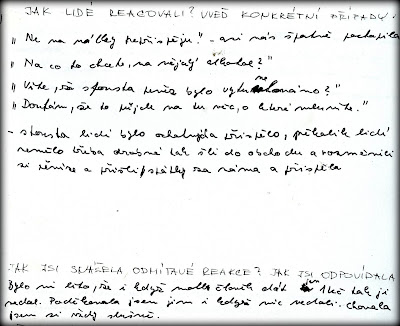 JAK LIDÉ REAGOVALI? UVEĎ KONKRÉTNÍ PŘÍPADY.
"Ne na nálky nepřispěju." - asi nás špatně pochopila
"Na co to chcete, na nějaký alkohol?"
"Víte, že spousta peněz bylo vytunelováno?"
"Doufám, že to půjde na tu věc, o které mluvíte."
- spousta lidí bylo ochotných a přispělo, několik lidí
nemělo třeba drobné tak šli do obchodu a rozměnili
si peníze a přišli zpátky za náma a přispěli
JAK JSI SNÁŠELA ODMÍTAVÉ REAKCE? JAK JSI ODPOVÍDALA
Bylo mi líto, že i když mohl člověk dát jen 1 kč tak ji
nedal. Poděkovala jsem jim i když nic nedali. Chovala
jsem se vždy slušně.